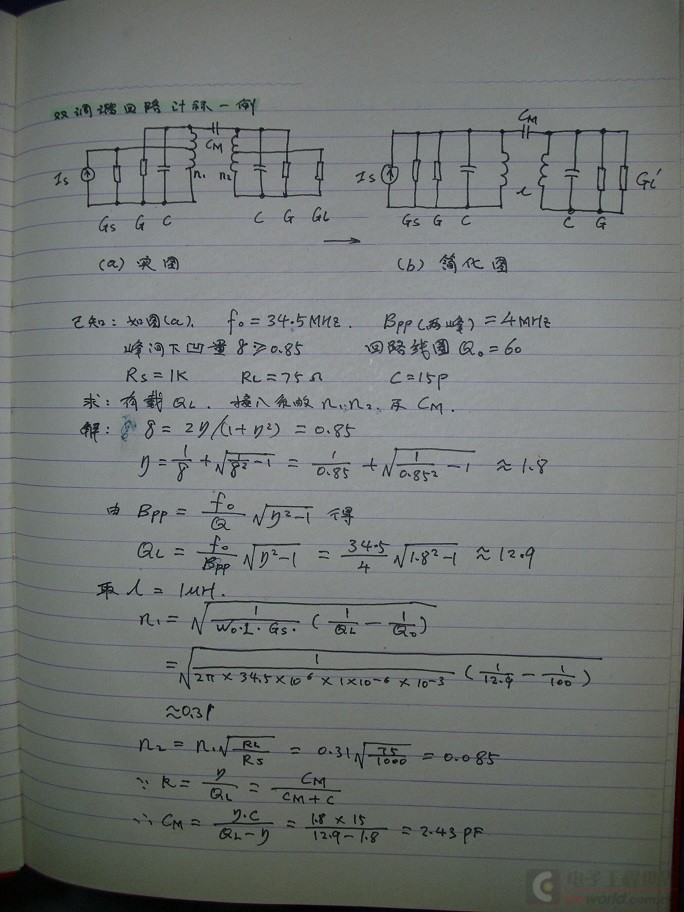 双调谐回路计标一例
Is Gs G C n1 CM n2 C G GL
Is Gs G C CM l C G GL'
(a) 实图
(b) 简化图
已知: 如图(a), f₀=34.5MHz. Bpp(两峰)=4MHz
峰间下凹量 g≥0.85 回路线圈 Q₀=60
Rs=1K RL=75Ω C=15P
求: 有载QL, 接入系数 n₁, n₂, 及 CM.
解: g = 2η/(1+η²) = 0.85
η = 1/g + √(1/g² - 1) = 1/0.85 + √(1/0.85² - 1) ≈ 1.8
由 Bpp = f₀/Q √(η²-1) 得
QL = f₀/Bpp √(η²-1) = 34.5/4 √(1.8²-1) ≈ 12.9
取 l = 1μH.
n₁ = √(1/(W₀·l·Gs·) (1/QL - 1/Q₀))
= √(1/(2π×34.5×10⁶×1×10⁻⁶×10⁻³) (1/12.9 - 1/100))
≈0.31
n₂ = n₁√(RL/Rs) = 0.31√(75/1000) = 0.085
∵ K = η/QL = CM/(CM+C)
∴ CM = η·C/(QL-η) = 1.8×15/(12.9-1.8) = 2.43 PF